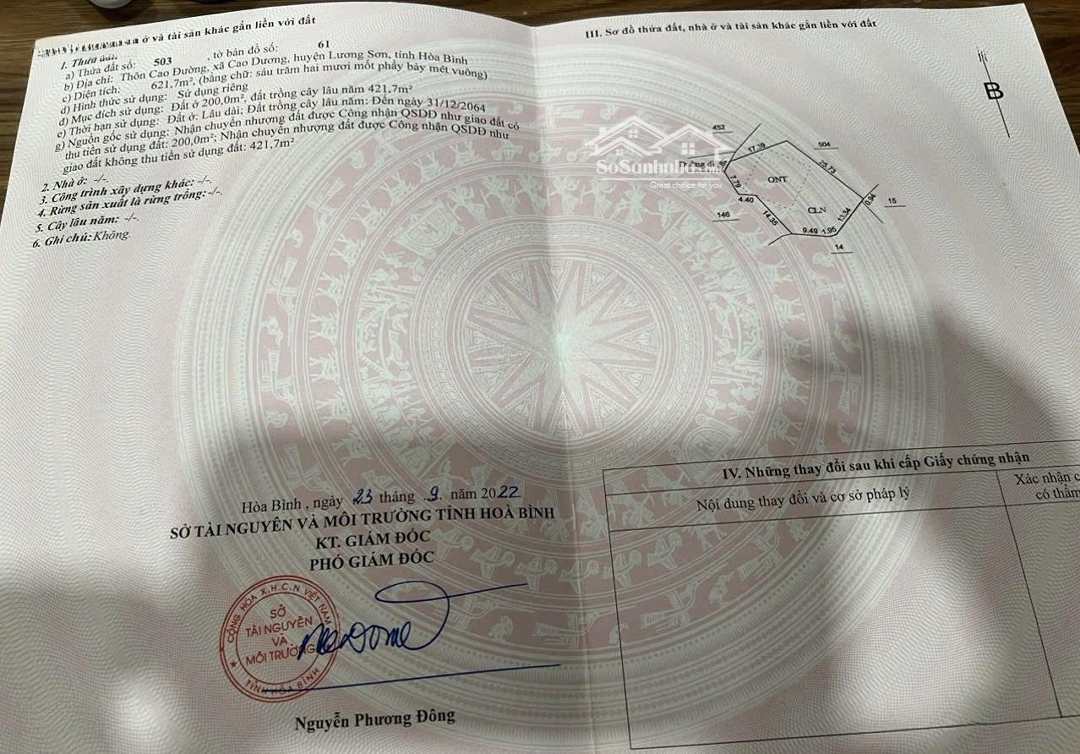 ở và tài sản khác gắn liền với đất
1. Thửa đất:
a) Thửa đất số: 503 , tờ bản đồ số: 61
b) Địa chỉ: Thôn Cao Đường, xã Cao Dương, huyện Lương Sơn, tỉnh Hòa Bình
c) Diện tích: 621,7m², (bằng chữ: sáu trăm hai mươi mốt phẩy bảy mét vuông)
d) Hình thức sử dụng: Sử dụng riêng
đ) Mục đích sử dụng: Đất ở 200,0m², đất trồng cây lâu năm 421,7m²
e) Thời hạn sử dụng: Đất ở: Lâu dài; Đất trồng cây lâu năm: Đến ngày 31/12/2064
g) Nguồn gốc sử dụng: Nhận chuyển nhượng đất được Công nhận QSDĐ như giao đất có
thu tiền sử dụng đất: 200,0m²; Nhận chuyển nhượng đất được Công nhận QSDĐ như
giao đất không thu tiền sử dụng đất: 421,7m²
2. Nhà ở: -/-.
3. Công trình xây dựng khác: -/-.
4. Rừng sản xuất là rừng trồng: -/-.
5. Cây lâu năm: -/-.
6. Ghi chú: Không.
Hòa Bình , ngày 23 tháng .9. năm 2022
SỞ TÀI NGUYÊN VÀ MÔI TRƯỜNG TỈNH HOÀ BÌNH
KT. GIÁM ĐỐC
PHÓ GIÁM ĐỐC
CỘNG HÒA X.H.C.N VIỆT NAM
SỞ
TÀI NGUYÊN
VÀ
MÔI TRƯỜNG
TỈNH HÒA BÌNH
Nguyễn Phương Đông
III. Sơ đồ thửa đất, nhà ở và tài sản khác gắn liền với đất
B
452
17.39
504
25.73
Đường đi
7.79
ONT
4.40
146
14.35
CLN
9.49
1.95
13.34
0.94
15
14
SoSanhnha.com
Great choice for you
IV. Những thay đổi sau khi cấp Giấy chứng nhận
Nội dung thay đổi và cơ sở pháp lý
Xác nhận c
có thẩm